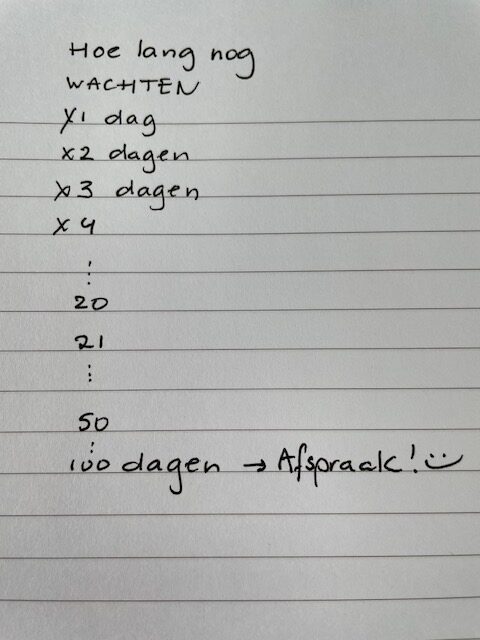 Hoe lang nog
WACHTEN
X1 dag
x2 dagen
x3 dagen
x 4
⋮
20
21
⋮
50
⋮
100 dagen → Afspraak! :)